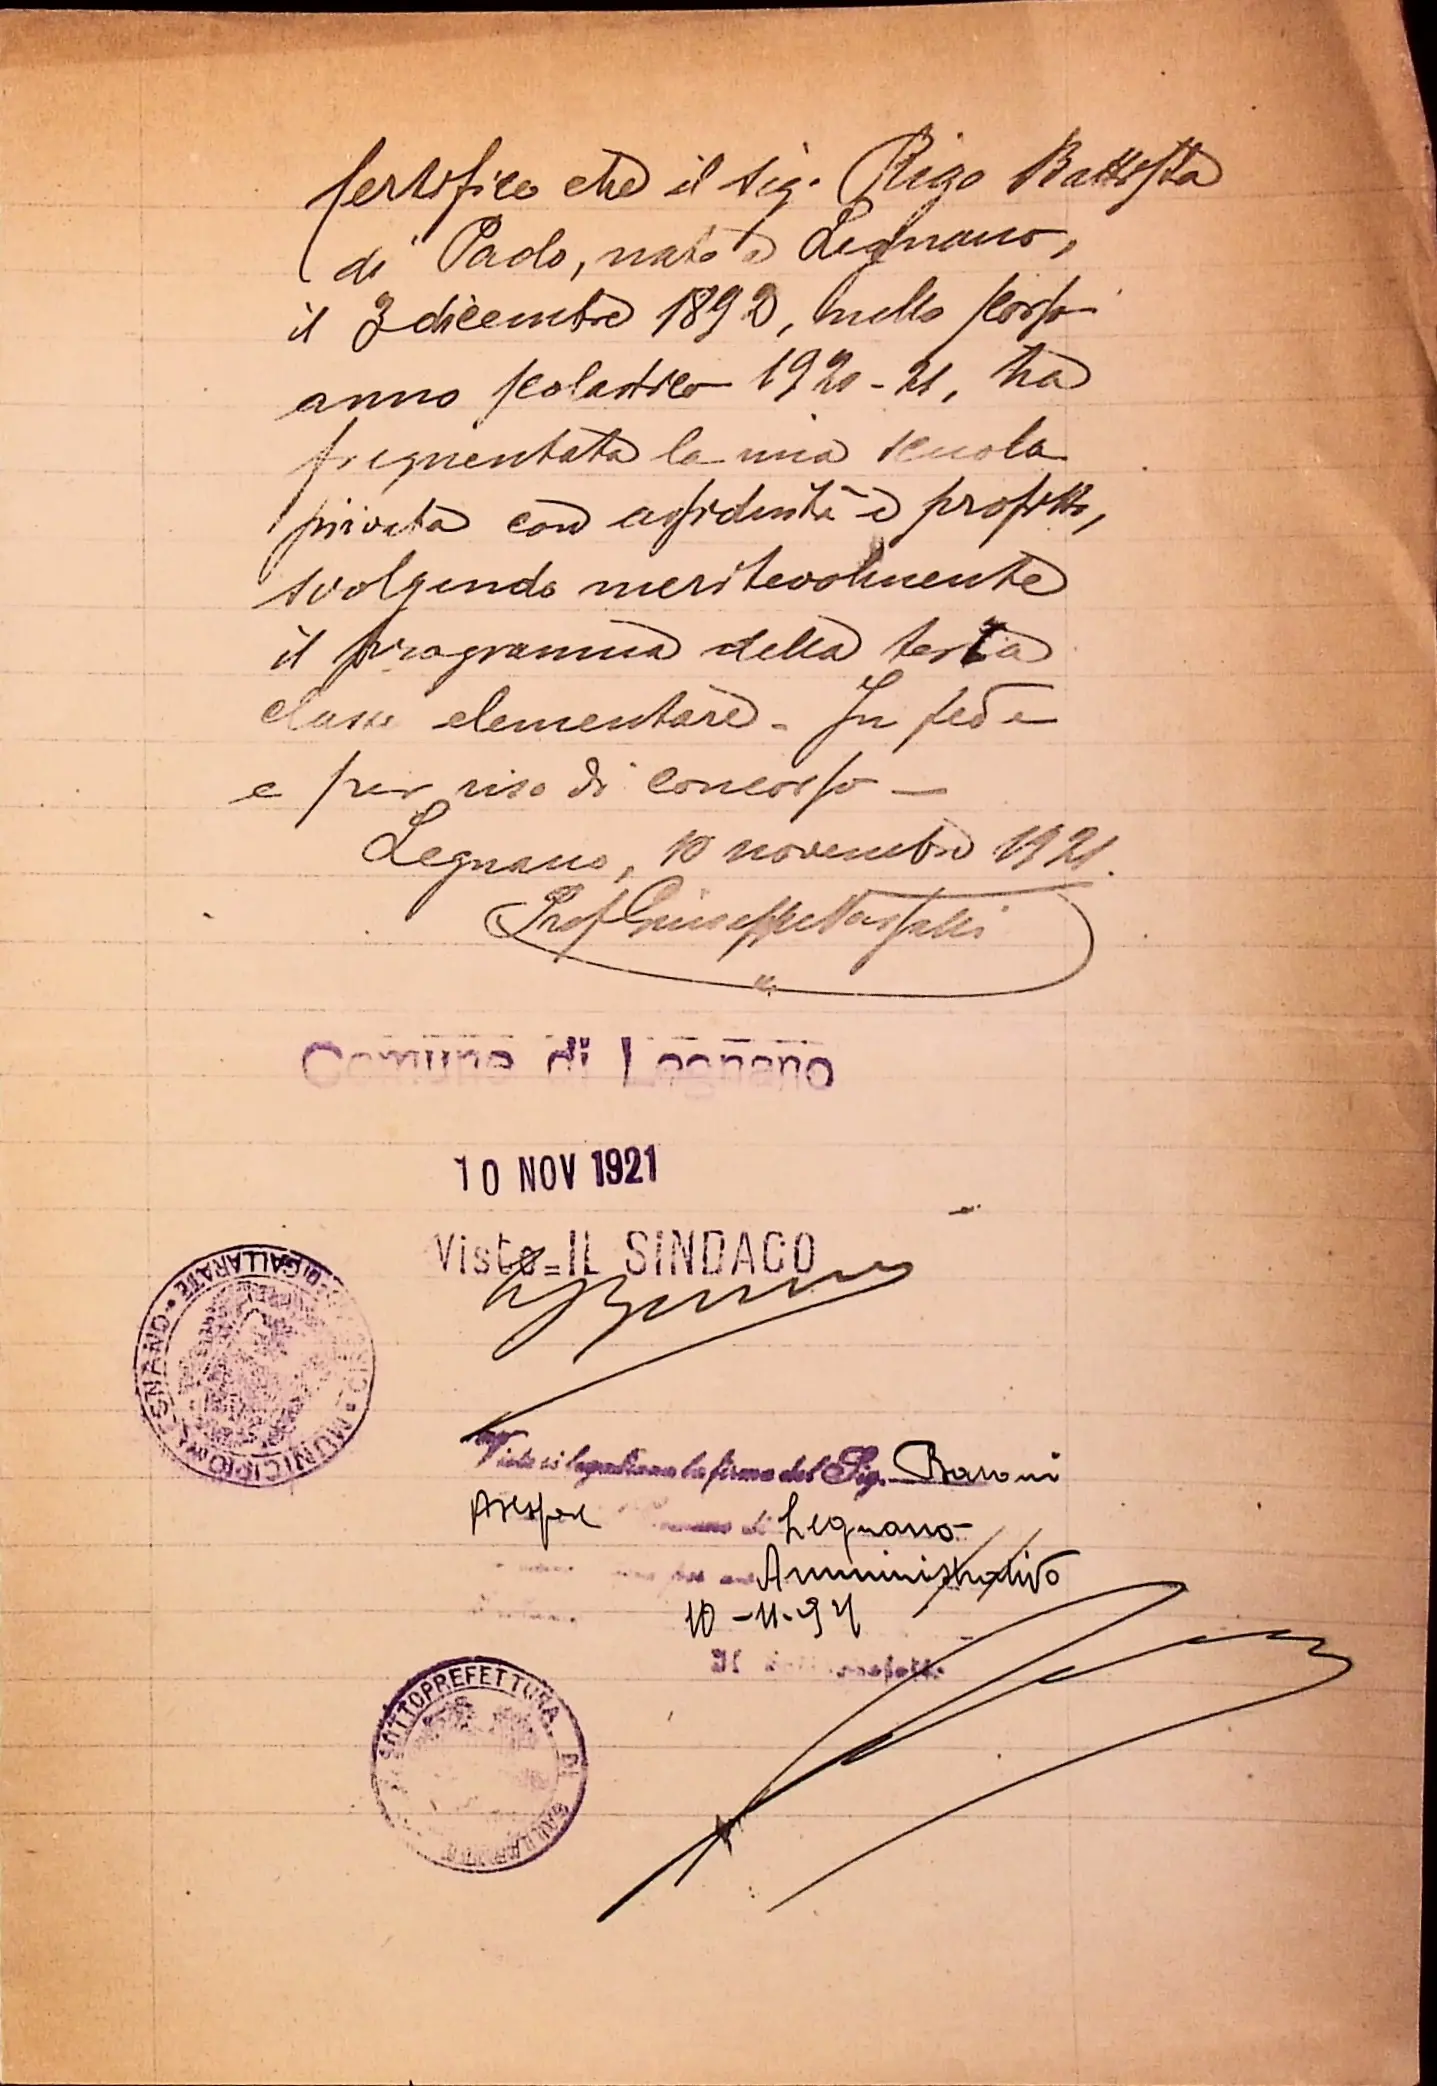 Certifico che il sig. Rigo Battista
di Paolo, nato a Legnano,
il 3 dicembre 1892, nello scorso
anno scolastico 1920-21, ha
frequentata la mia scuola
privata con assiduità e profitto,
svolgendo meritevolmente
il programma della terza
classe elementare. In fede
e per uso di concorso —
Legnano, 10 novembre 1921.
Prof Giuseppe
Comune di Legnano
10 NOV 1921
Visto=IL SINDACO
MUNICIPIO DI LEGNANO • DI GALLARATE •
Visto si legalizza la firma del Sig. Baroni
Assessore Comune di Legnano
Amministrativo
10-11-921
Il
SOTTOPREFETTURA DI GALLARATE